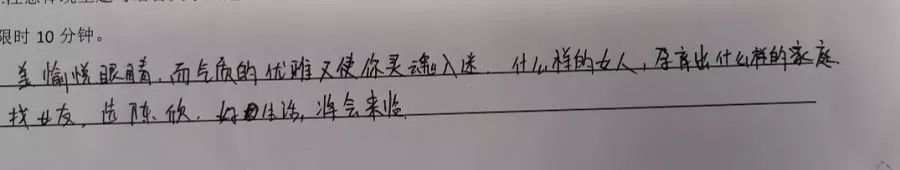 限时 10 分钟。
美愉悦眼睛,而气质的优雅又使你灵魂入迷. 什么样的女人,孕育出什么样的家庭.
找女友,选陈欣.好的生活,将会来临.